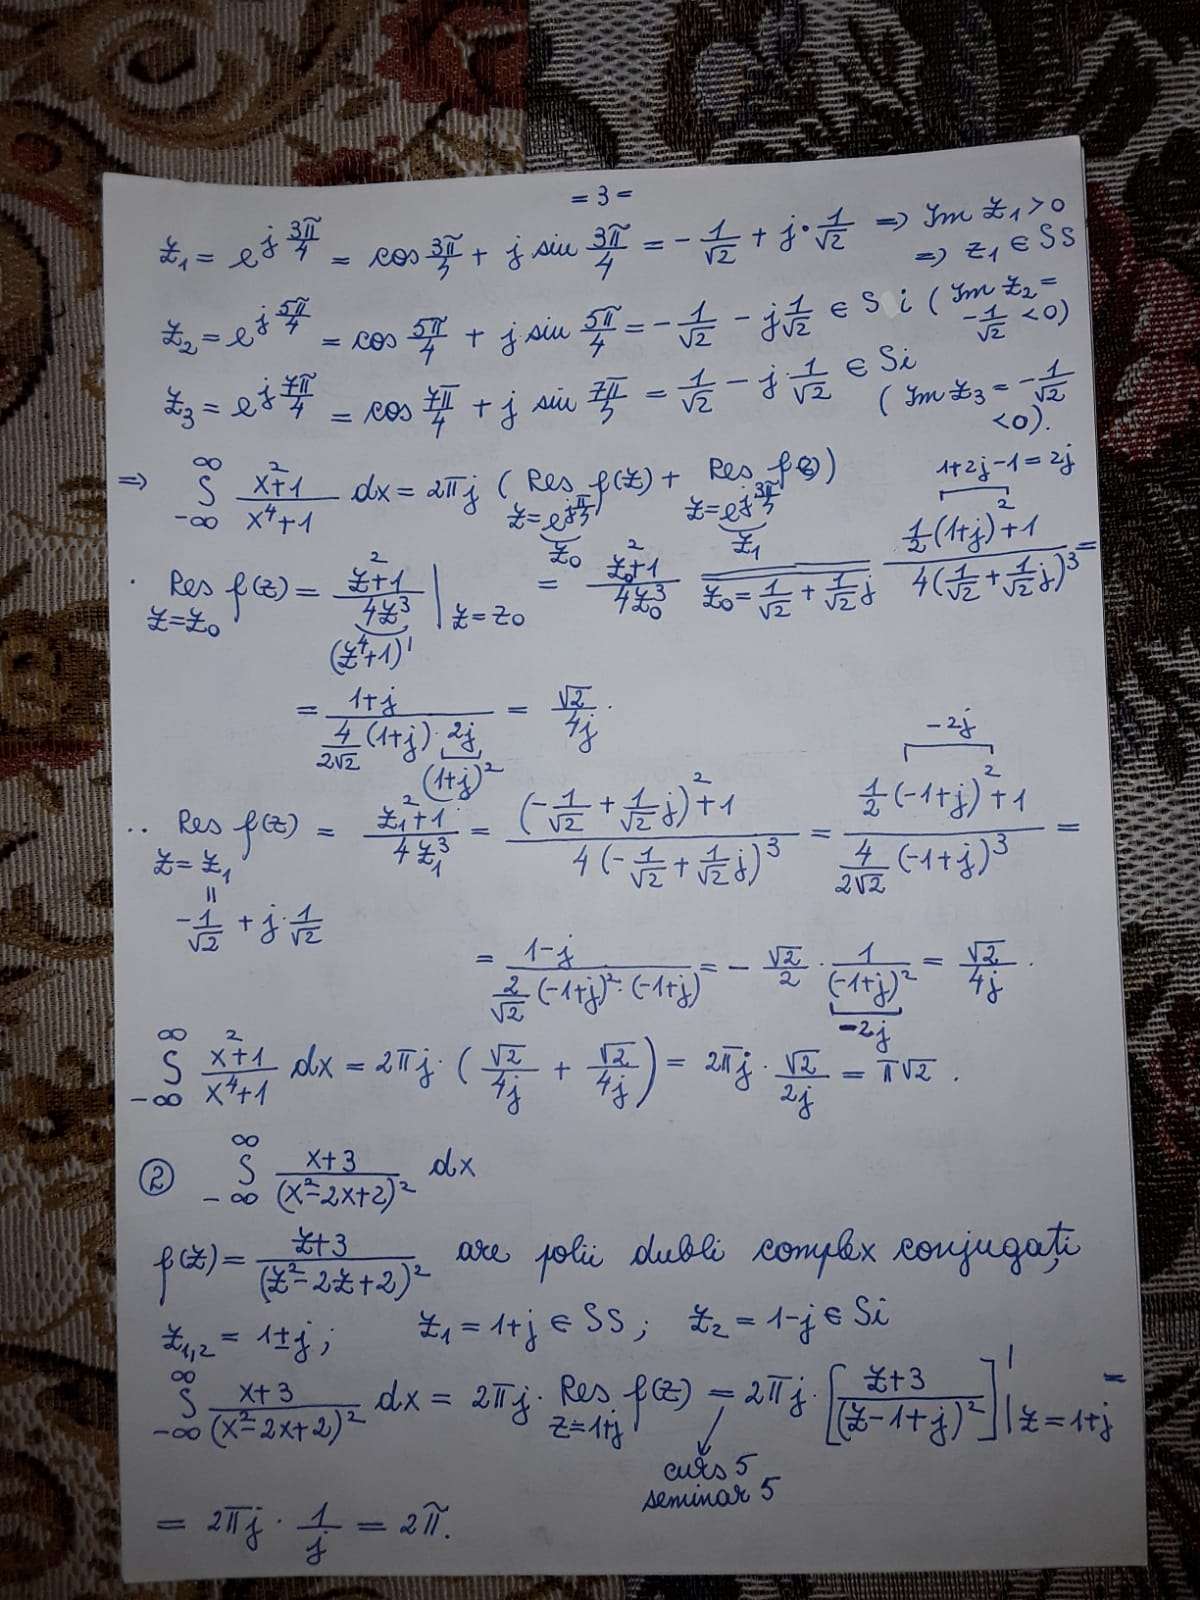 = 3 =
z₁ = e^{j 3π/4} = cos 3π/4 + j sin 3π/4 = -1/√2 + j·1/√2 ⇒ Im z₁ > 0
⇒ z₁ ∈ SS
z₂ = e^{j 5π/4} = cos 5π/4 + j sin 5π/4 = -1/√2 - j 1/√2 ∈ Si (Im z₂ = -1/√2 < 0)
z₃ = e^{j 7π/4} = cos 7π/4 + j sin 7π/4 = 1/√2 - j·1/√2 ∈ Si
(Im z₃ = -1/√2 < 0).
⇒ ∫_{-∞}^{∞} (x²+1)/(x⁴+1) dx = 2πj (Res f(z)_{z=e^{jπ/4}, z₀} + Res f(z)_{z=e^{j3π/4}, z₁})
1+2j-1=2j
· Res_{z=z₀} f(z) = (z²+1)/(4z³) |_{z=z₀} = (z₀²+1)/(4z₀³) =_{z₀ = 1/√2 + 1/√2 j} (1/2 (1+j)² + 1)/(4(1/√2 + 1/√2 j)³) =
(z⁴+1)'
= (1+j)/(4/(2√2) (1+j)·2j) = √2/(4j).
(1+j)²
-2j
·· Res_{z=z₁} f(z) = (z₁²+1)/(4z₁³) = ((-1/√2 + 1/√2 j)² + 1)/(4(-1/√2 + 1/√2 j)³) = (1/2 (-1+j)² + 1)/(4/(2√2) (-1+j)³) =
= -1/√2 + j·1/√2
= (1-j)/(2/√2 (-1+j)²·(-1+j)) = - √2/2 · 1/(-1+j)² = √2/(4j).
-2j
∫_{-∞}^{∞} (x²+1)/(x⁴+1) dx = 2πj·(√2/(4j) + √2/(4j)) = 2πj·√2/(2j) = π√2.
② ∫_{-∞}^{∞} (x+3)/(x²-2x+2)² dx
f(z) = (z+3)/(z²-2z+2)² are polii dubli complex conjugați
z₁,₂ = 1±j; z₁ = 1+j ∈ SS; z₂ = 1-j ∈ Si
∫_{-∞}^{∞} (x+3)/(x²-2x+2)² dx = 2πj·Res_{z=1+j} f(z) = 2πj·[(z+3)/(z-1+j)²]' |_{z=1+j} =
curs 5
seminar 5
= 2πj · 1/j = 2π.